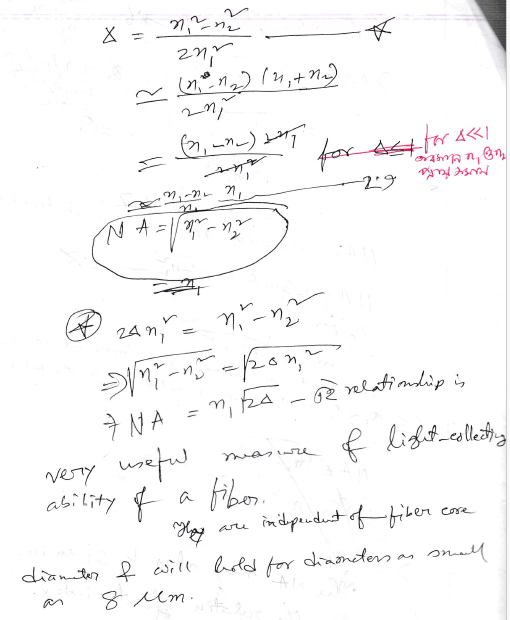 Δ = n₁² - n₂² / 2n₁²
≃ (n₁ - n₂) (n₁ + n₂) / 2n₁²
= (n₁ - n₂) 2n₁ / 2n₁² for Δ<<1
n₁ - n₂ / n₁ 2.9
NA = √n₁² - n₂²
2Δn₁² = n₁² - n₂²
⇒ √n₁² - n₂² = √2Δn₁²
⇒ NA = n₁√2Δ - relationship is
very useful measure of light-collecting
ability of a fiber.
They are independent of fiber core
diameter & will hold for diameters as small
as 8 μm.